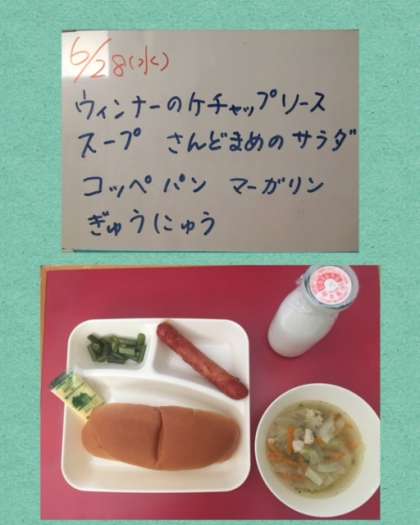 6/28(水)
ウィンナーのケチャップソース
スープ さんどまめのサラダ
コッペパン マーガリン
ぎゅうにゅう